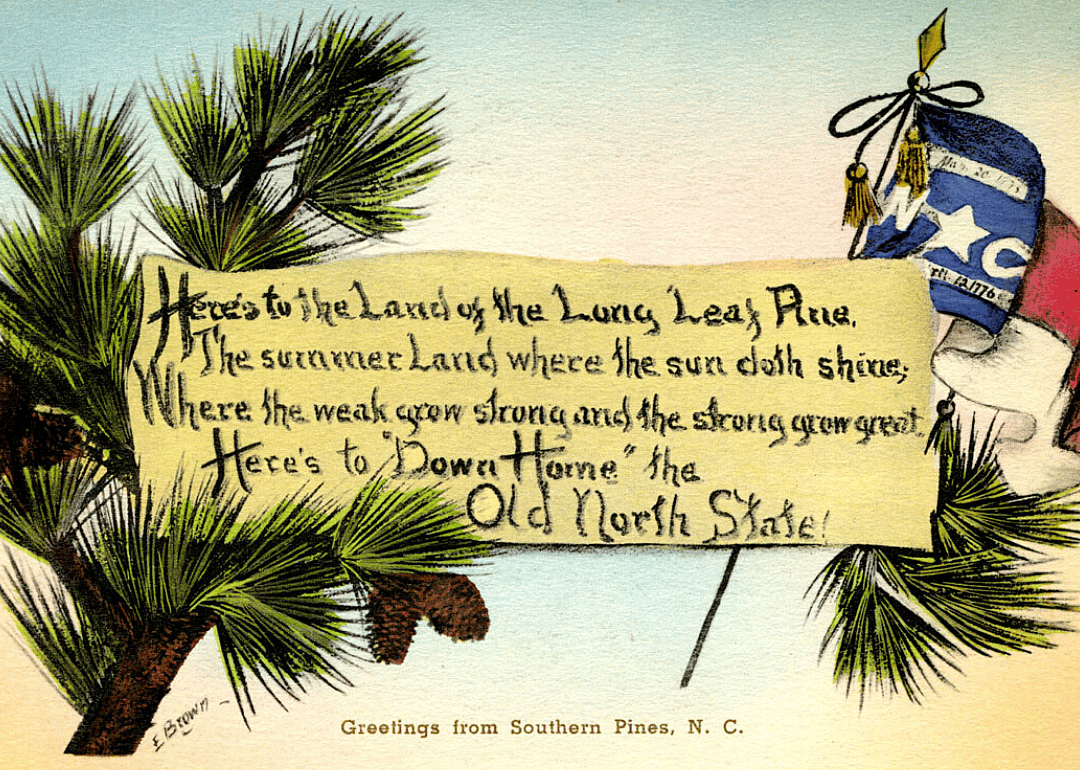 Here's to the Land of the Long Leaf Pine,
The summer Land where the sun doth shine;
Where the weak grow strong and the strong grow great
Here's to "Down Home" the
Old North State!
N C
April 12, 1776
E Brown
Greetings from Southern Pines, N. C.